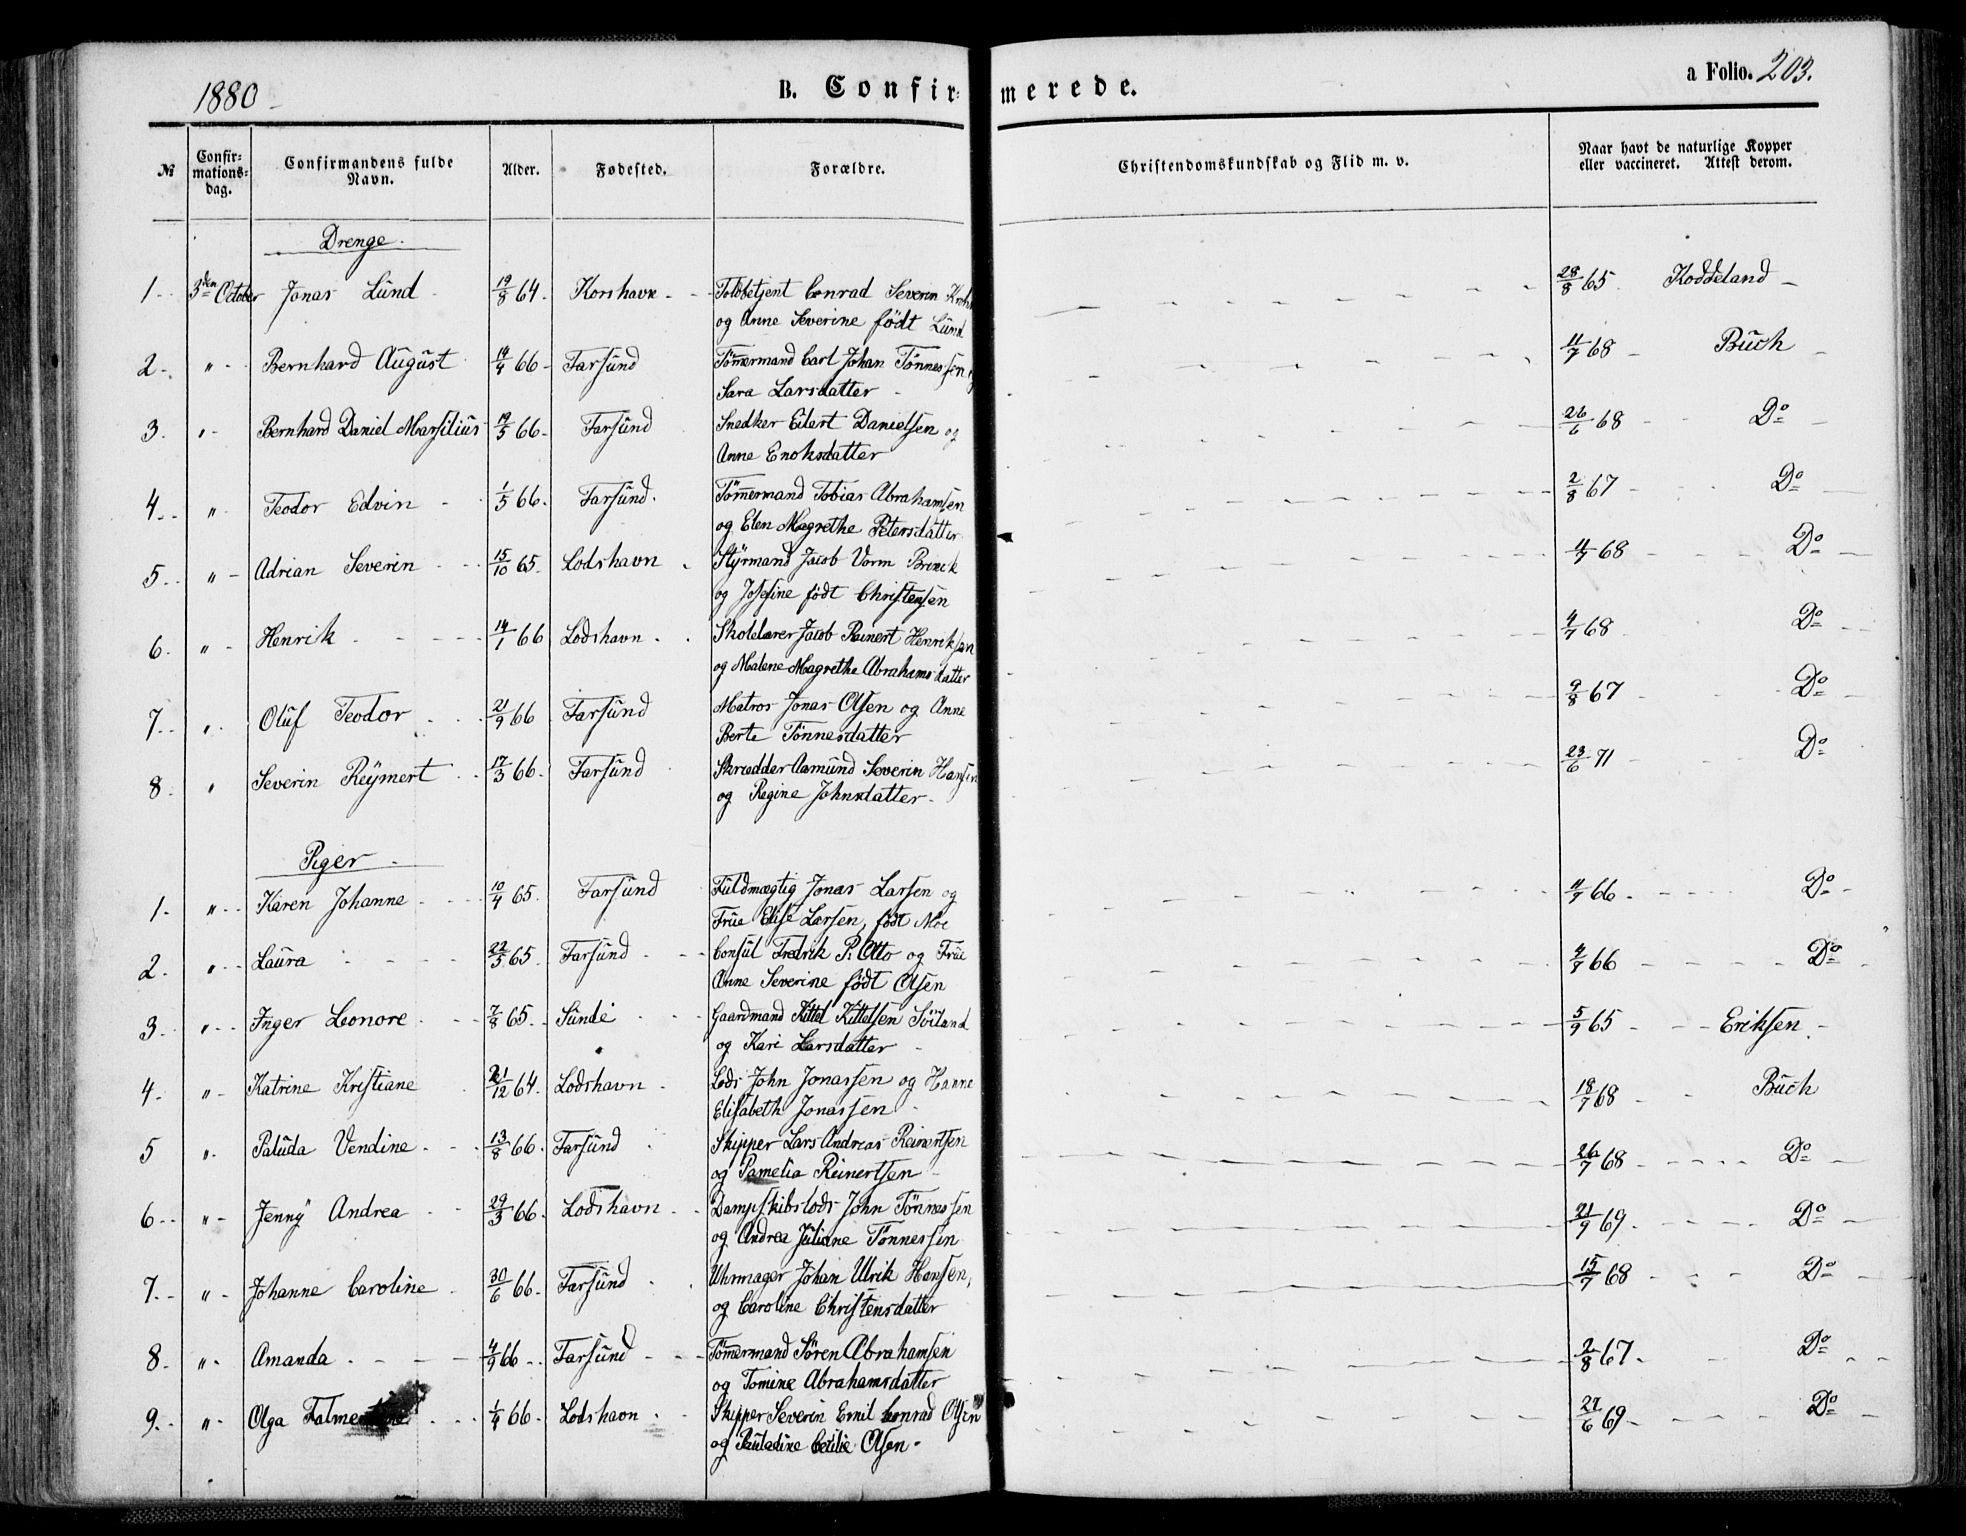 1880
B. Confirmerede.
a Folio. 203.
№ Confirmationsdag. Confirmandens fulde Navn. Alder. Fødested. Forældre. Christendomskundskab og Flid m. v. Naar havt de naturlige Kopper eller vaccineret. Attest derom.
Drenge.
1. 3den October Jonas Lund 19/8 64. Korshavn Toldbetjent Conrad Severin 28/8 65 Koddeland
og Anne Severine født Lund
2. " Bernhard August 14/4 66 Farsund Tömermand Carl Johan Tønnessen 11/7 68 Buch
Sara Larsdatter
3. " Bernhard Daniel Marsilius 19/5 66 Farsund Snedker Eilert Danielsen og 26/6 68 Do
Anne Enoksdatter
4. " Teodor Edvin 1/5 66. Farsund. Tömermand Tobias Abrahamsen 2/8 67 Do
og Elen Magrethe Petersdatter
5. " Adrian Severin 15/10 65. Lodshavn Styrmand Jacob Vorm Brinck 11/7 68 Do
og Josefine født Christensen
6. " Henrik 14/1 66 Lodshavn Skolelærer Jacob Reinert Henriksen 4/7 68 Do
og Malene Magrethe Abrahamsdatter
7. " Oluf Teodor 21/9 66 Farsund Matros Jonas Olsen og Anne 9/8 67 Do
Berte Tönnesdatter
8. " Severin Reymert 17/3 66. Farsund Skrædder Aamund Severin Hansen 23/6 71 Do
og Regine Johnsdatter.
Piger
1. " Karen Johanne 10/4 65. Farsund Fuldmægtig Jonas Larsen og 11/7 66. Do
Frue Elise Larsen, født Moe
2. " Laura 22/5 65. Farsund Consul Fredrik P. Otto og Frue 4/7 66 Do
Anne Severine født Olsen
3. " Inger Leonore 7/8 65. Sunde Gaardmand Kittel Kittelsen Söiland 5/9 65 Eriksen
og Kari Larsdatter
4. " Katrine Kristiane 21/12 64. Lodshavn Lods John Jonassen og Hanne 18/7 68 Buch
Elisabeth Jonassen
5 " Paluda Vendine 13/8 66. Farsund Skipper Lars Andreas Reinertsen 26/7 68 Do
og Pamelia Reinertsen
6. " Jenny Andrea 29/3 66. Lodshavn Dampskibslods John Tönnessen 21/9 69. Do
og Andrea Juliane Tönnessen
7. " Johanne Caroline 30/6 66. Farsund Uhrmager Johan Ulrik Hansen, 15/7 68 Do
og Caroline Christensdatter
8. " Amanda 4/9 66 Farsund Tömermand Sören Abrahamsen 2/8 67. Do
og Tomine Abrahamsdatter
9. " Olga 1/4 66 Lodshavn Skipper Severin Emil Conrad Olsen 27/6 69 Do
og Cecilie Olsen.